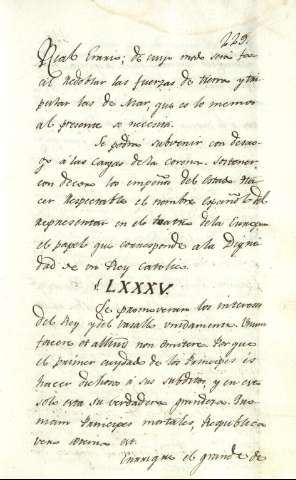 229.
Real Erario; de cuyo modo será fa
cil redoblar las fuerzas de tierra y tri
plicar las de Mar, que es lo menos
al presente se necesita.
Se podrá subvenir con desao
go a las Cargas de la corona. Sostener
con decoro los empeños del Estado. Ha
cer Respectable el nombre Español, y
Representar en el teatro de la Europa
el papel que corresponde a la Digni
dad de un Rey Catolico.
LXXXV.
Se promoveran los interess
del Rey y del vasallo unidamente. Unum
facere et alliud non omitere Porque
el primer cuydado de los Principes es
hacer dichosos á sus subditos, y en eso
solo esta su verdadera grandeza.
Principes mortales, Republica
vero eterna est.
Enrrique el grande de